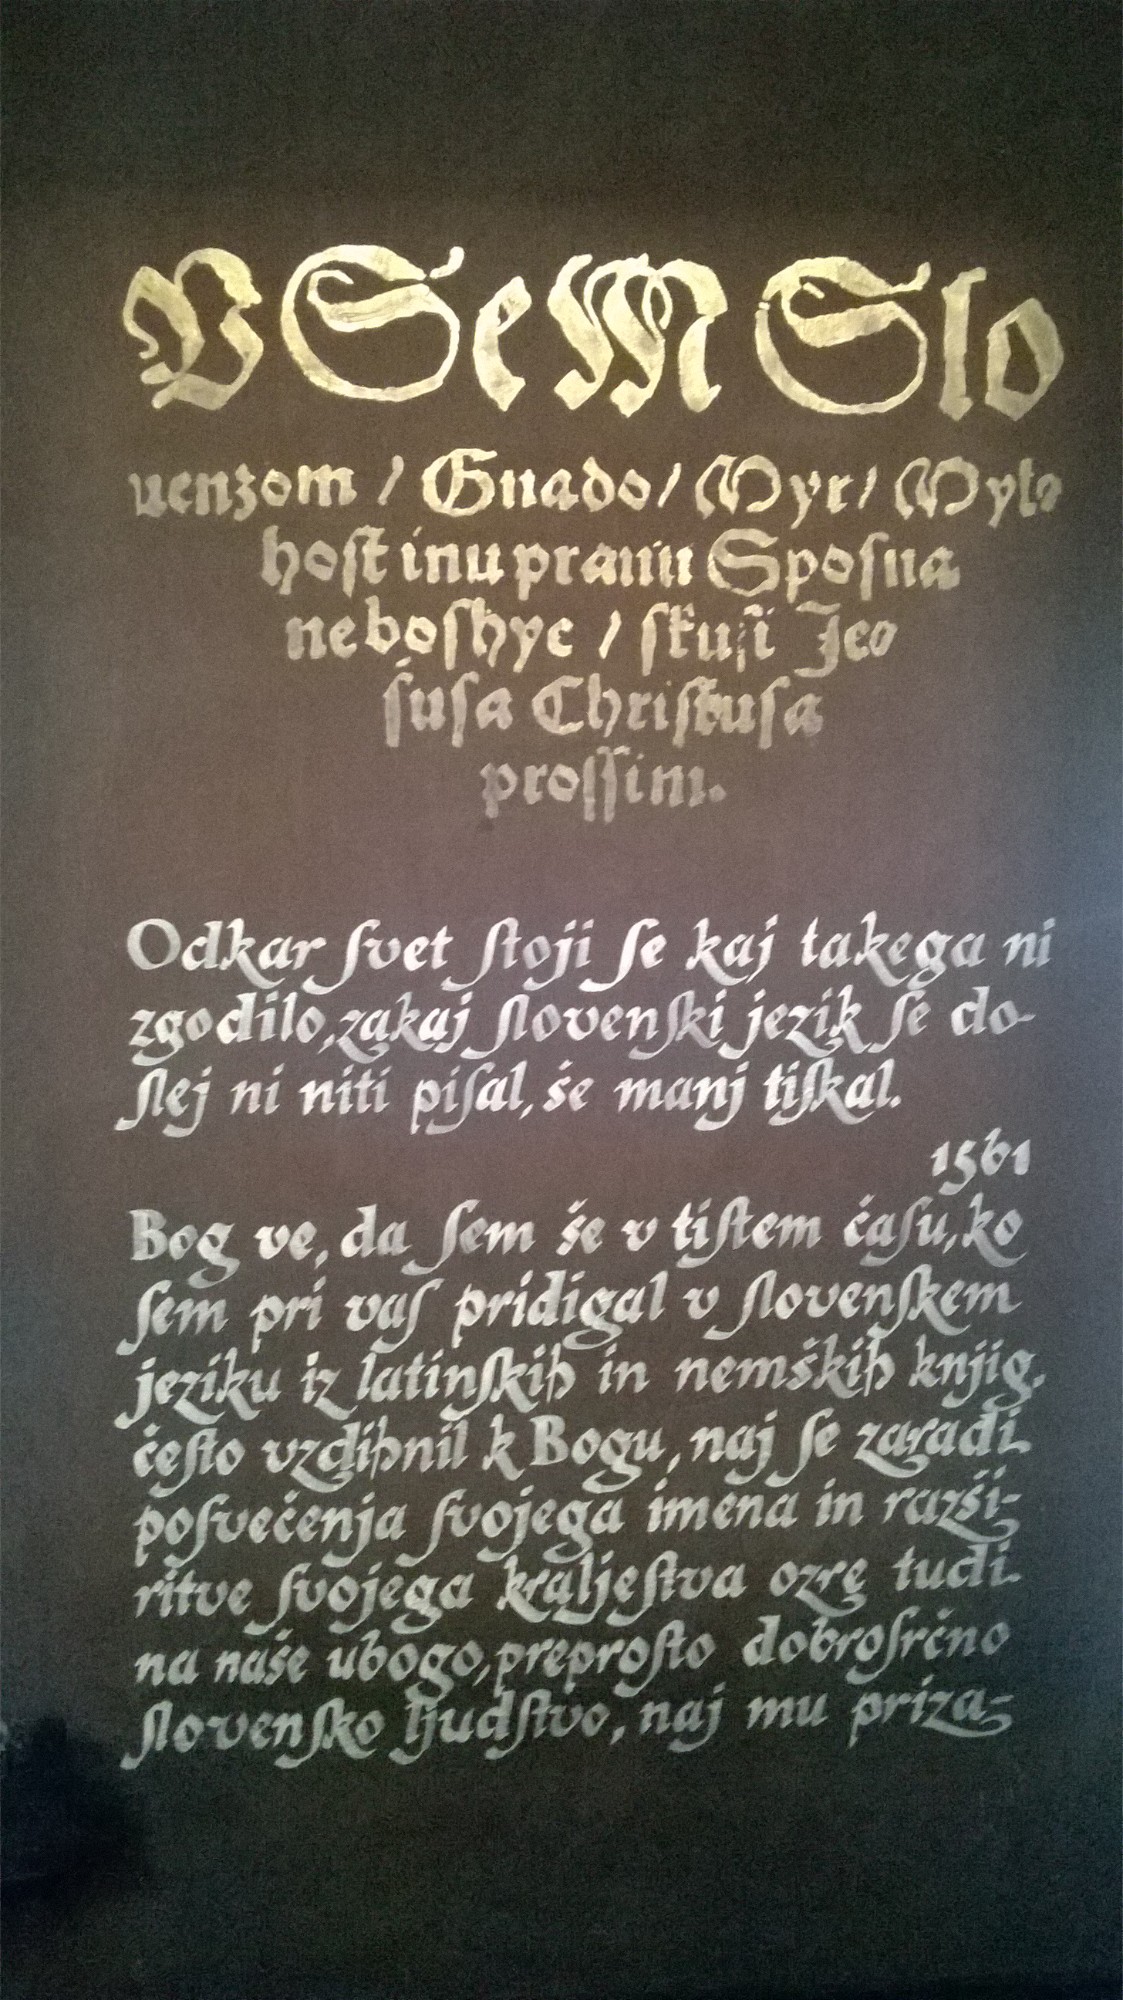 VSeM Slo
uenzom / Gnado / Myr / Mylo
hoſt inu prauu Sposna
ne boshyc / ſkuſi Jeo
ſuſa Chriſtuſa
proſſim.
Odkar ſvet ſtoji ſe kaj takega ni
zgodilo, zakaj ſlovenſki jezik ſe do-
ſlej ni niti piſal, še manj tiſkal.
1561
Bog ve, da ſem še v tiſtem čaſu, ko
ſem pri vaſ pridigal v ſlovenſkem
jeziku iz latinſkih in nemških knjig,
čeſto vzdihnil k Bogu, naj ſe zaradi
poſvečenja ſvojega imena in razši-
ritve ſvojega kraljeſtva ozre tudi
na naše ubogo, preproſto dobroſrčno
ſlovenſko ljudſtvo, naj mu priza-